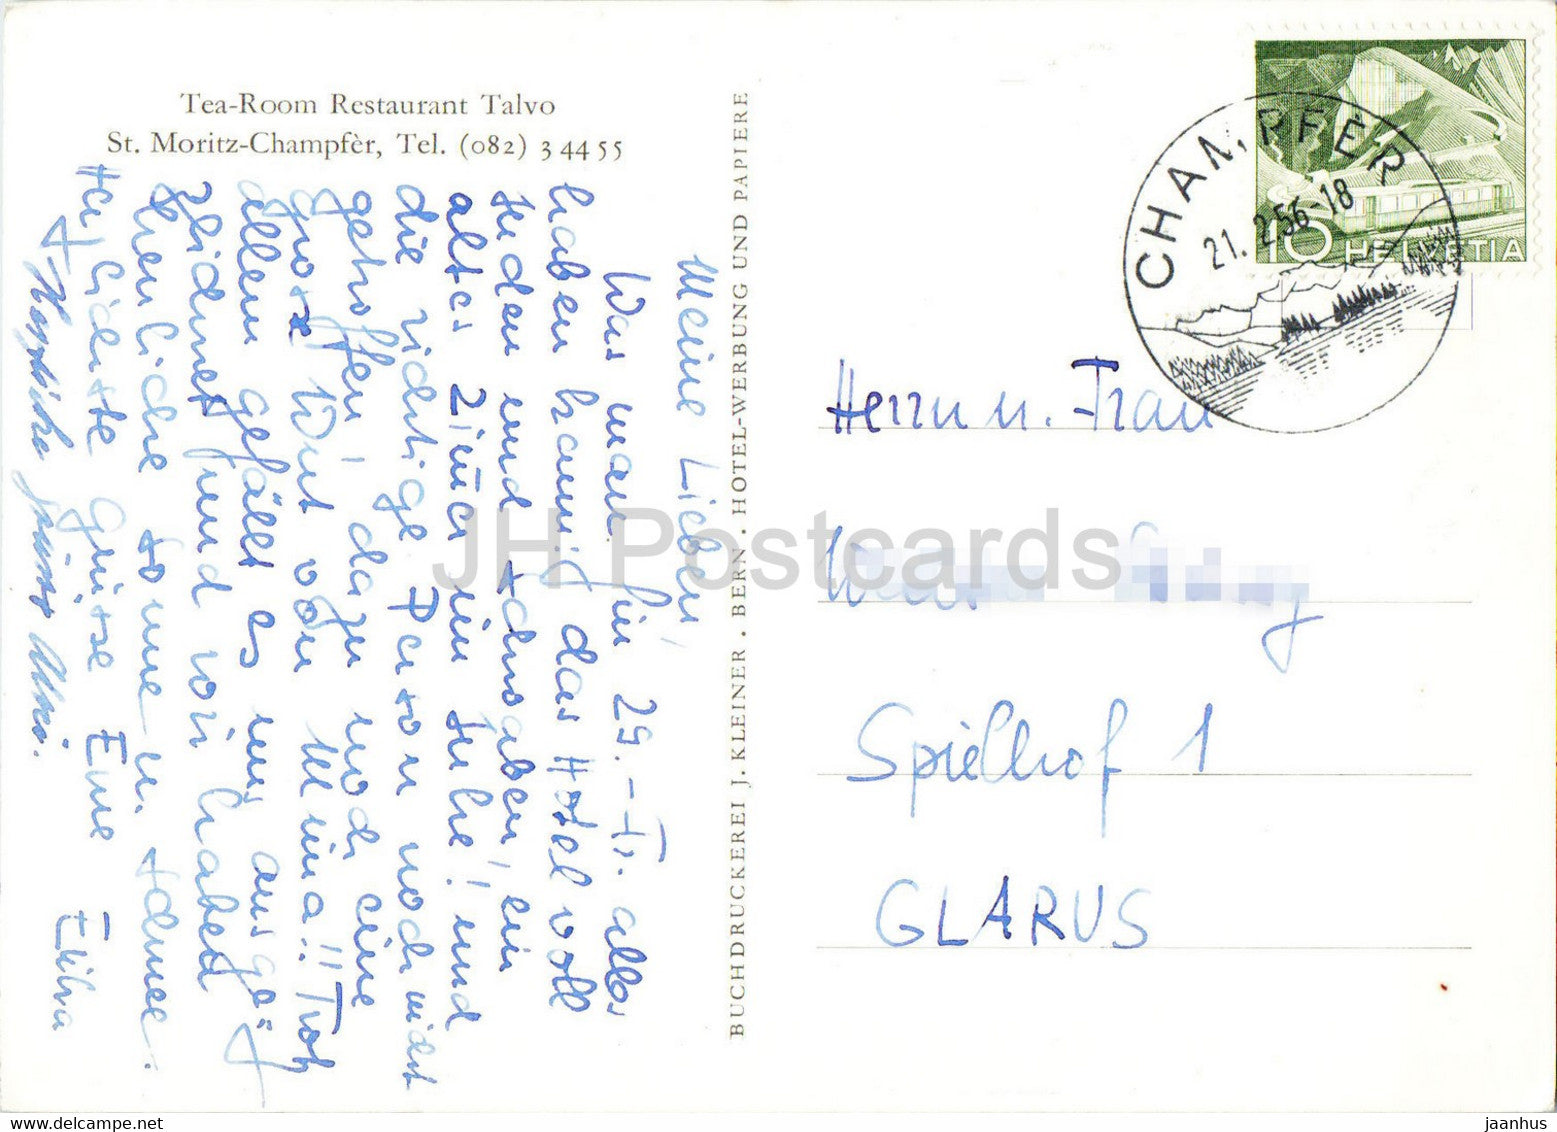 Tea-Room Restaurant Talvo
St. Moritz-Champfèr, Tel. (082) 3 44 55
Meine Lieben,
Was man für 29.-Fr. alles
haben kann, das Hotel voll
Juden und Schwaben, ein
altes Zimmer im Juhe! und
die richtige Person noch nicht
getroffen, dazu noch eine
grosse Wut von Mina!! Trotz
allem gefällt es uns ausge=
zeichnet und wir haben
herrliche Sonne u. Schnee.
Herzlichste Grüsse Eure Elika
Herzliche
BUCHDRUCKEREI J. KLEINER · BERN · HOTEL-WERBUNG UND PAPIERE
CHAMPFÈR
21. 2.56-18
10 HELVETIA
Herrn u. Frau
Spielhof 1
GLARUS
JH Postcards
jaanhus